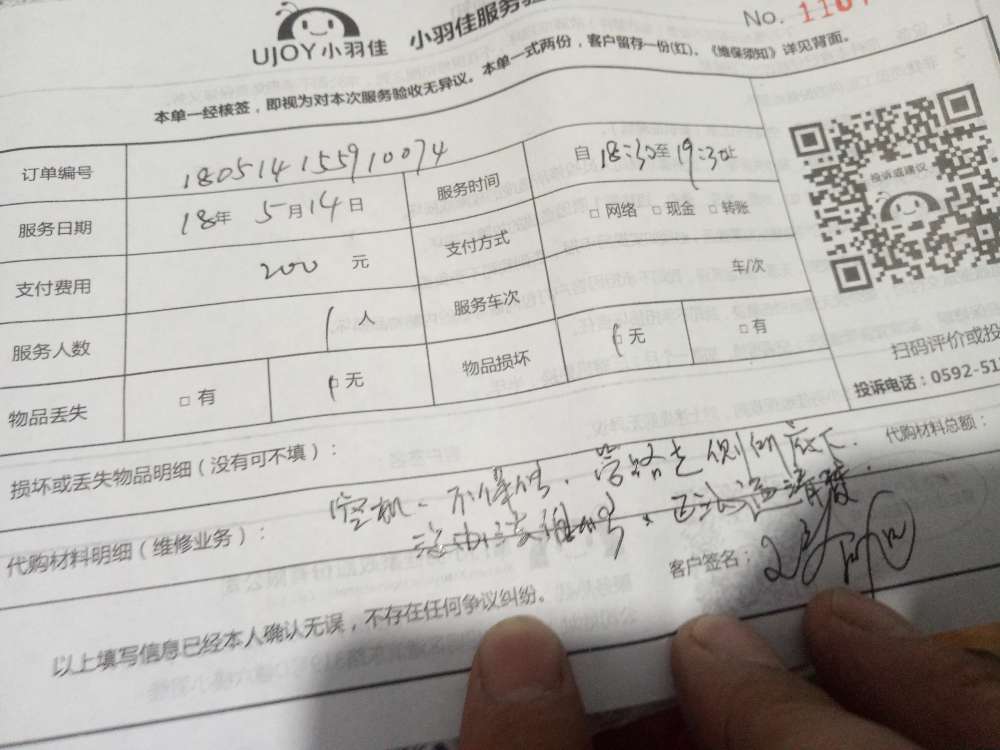 UJOY小羽佳 小羽佳服务
No. 110
本单一经核签，即视为对本次服务验收无异议。本单一式两份，客户留存一份(红)、《维保须知》详见背面。
订单编号 180514155910074 服务时间 自18:30至19:30止
服务日期 18年5月14日 支付方式 □ 网络 □ 现金 □ 转账
支付费用 200 元 服务车次 车/次
服务人数 1 人 物品损坏 □ 无 □ 有
物品丢失 □ 有 □ 无
投诉或建议
扫码评价或投
投诉电话：0592-51
损坏或丢失物品明细（没有可不填）：
代购材料总额：
代购材料明细（维修业务）：
客户签名：
以上填写信息已经本人确认无误，不存在任何争议纠纷。